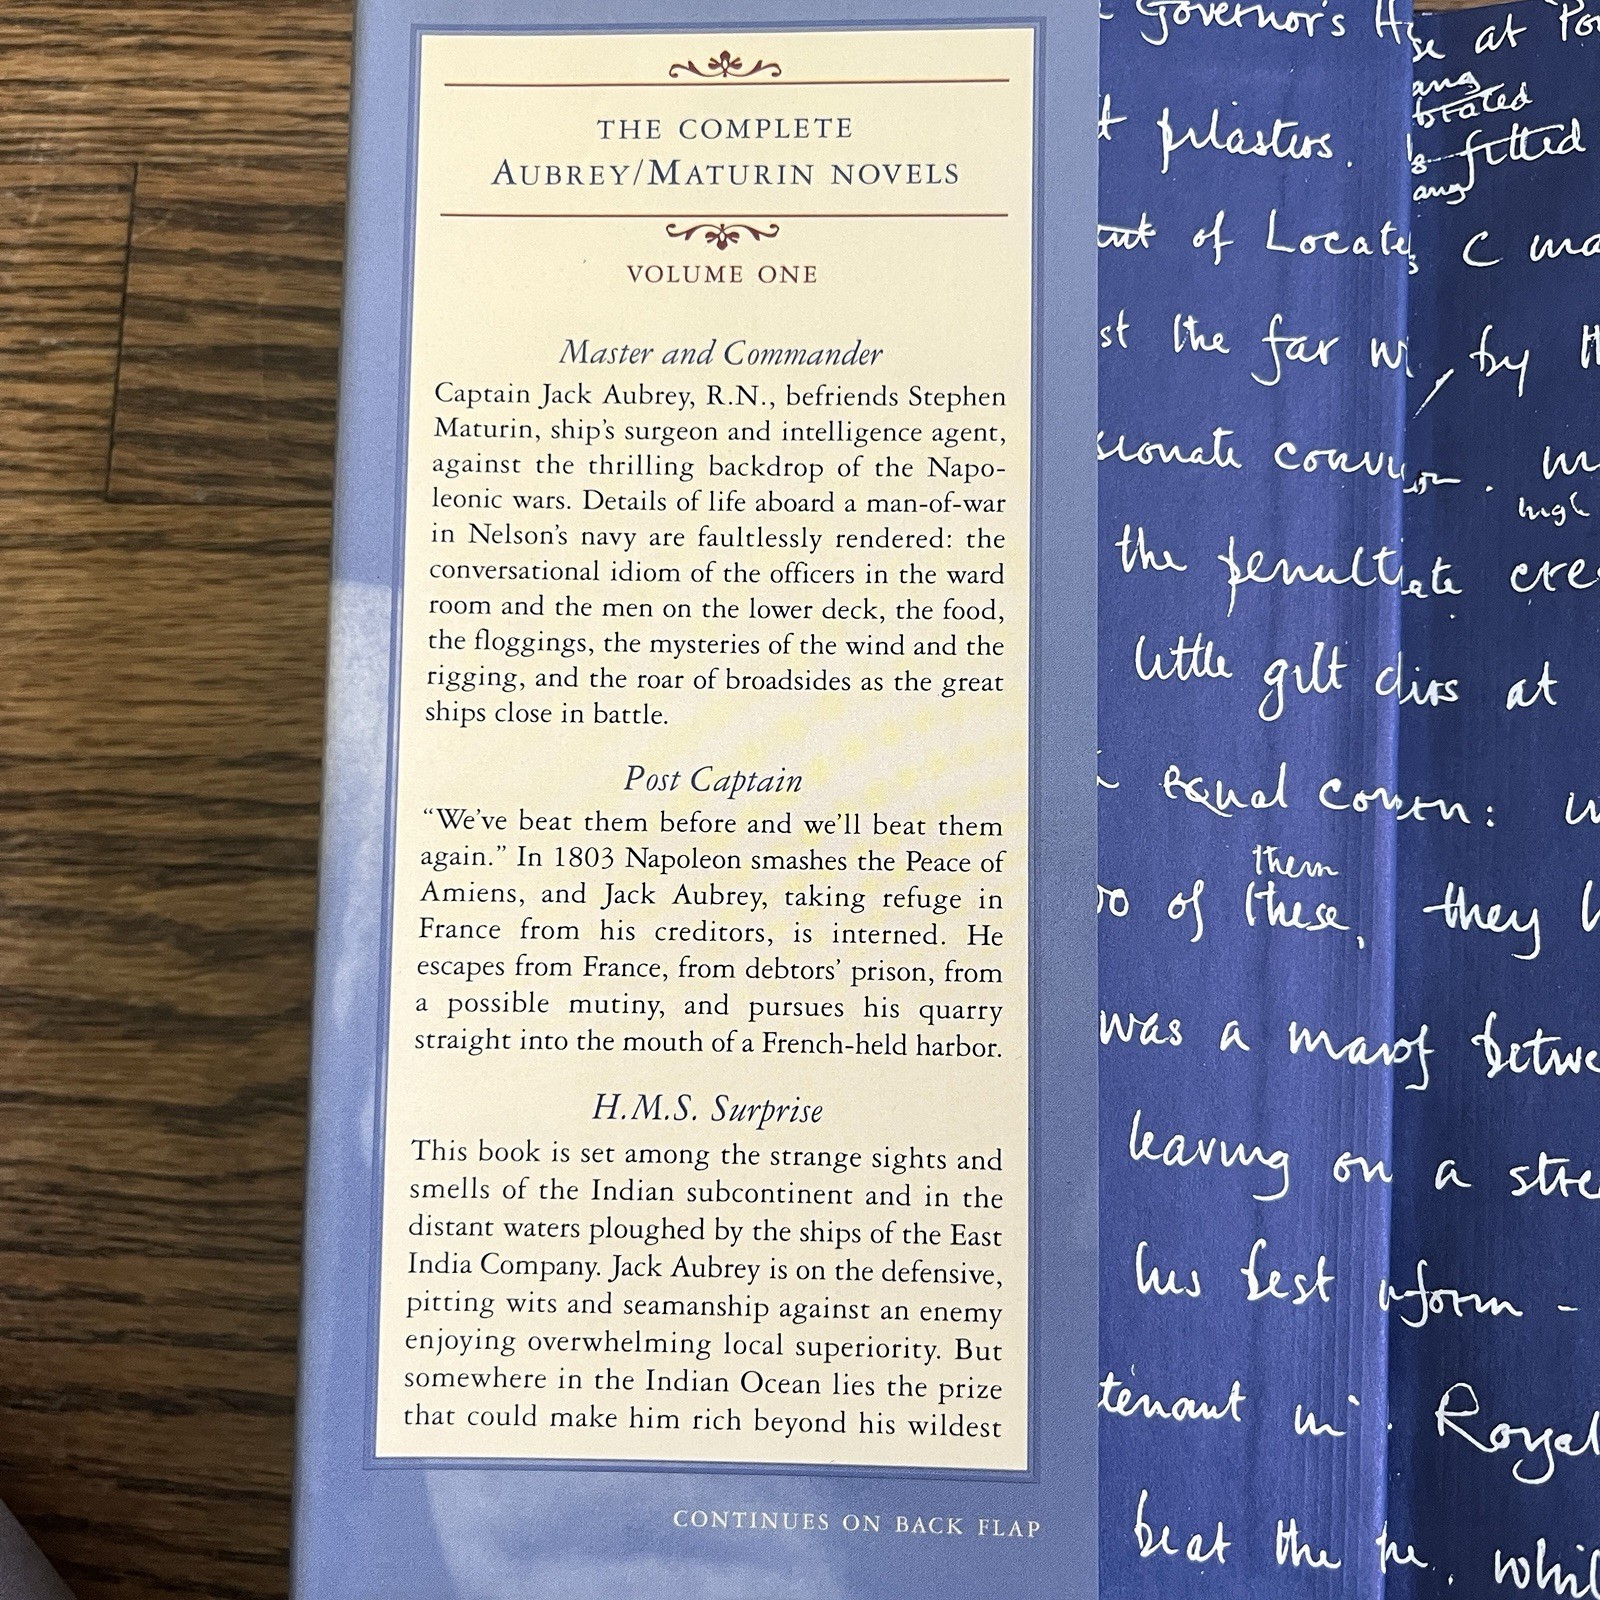 THE COMPLETE
AUBREY/MATURIN NOVELS
VOLUME ONE
Master and Commander
Captain Jack Aubrey, R.N., befriends Stephen
Maturin, ship's surgeon and intelligence agent,
against the thrilling backdrop of the Napo-
leonic wars. Details of life aboard a man-of-war
in Nelson's navy are faultlessly rendered: the
conversational idiom of the officers in the ward
room and the men on the lower deck, the food,
the floggings, the mysteries of the wind and the
rigging, and the roar of broadsides as the great
ships close in battle.
Post Captain
“We've beat them before and we'll beat them
again.” In 1803 Napoleon smashes the Peace of
Amiens, and Jack Aubrey, taking refuge in
France from his creditors, is interned. He
escapes from France, from debtors' prison, from
a possible mutiny, and pursues his quarry
straight into the mouth of a French-held harbor.
H.M.S. Surprise
This book is set among the strange sights and
smells of the Indian subcontinent and in the
distant waters ploughed by the ships of the East
India Company. Jack Aubrey is on the defensive,
pitting wits and seamanship against an enemy
enjoying overwhelming local superiority. But
somewhere in the Indian Ocean lies the prize
that could make him rich beyond his wildest
CONTINUES ON BACK FLAP
Governor's at
pilasters. fitted
of
the far by
the
little gilt at
equal
them
of these, they
was a
leaving on a
his best
Royal
beat the